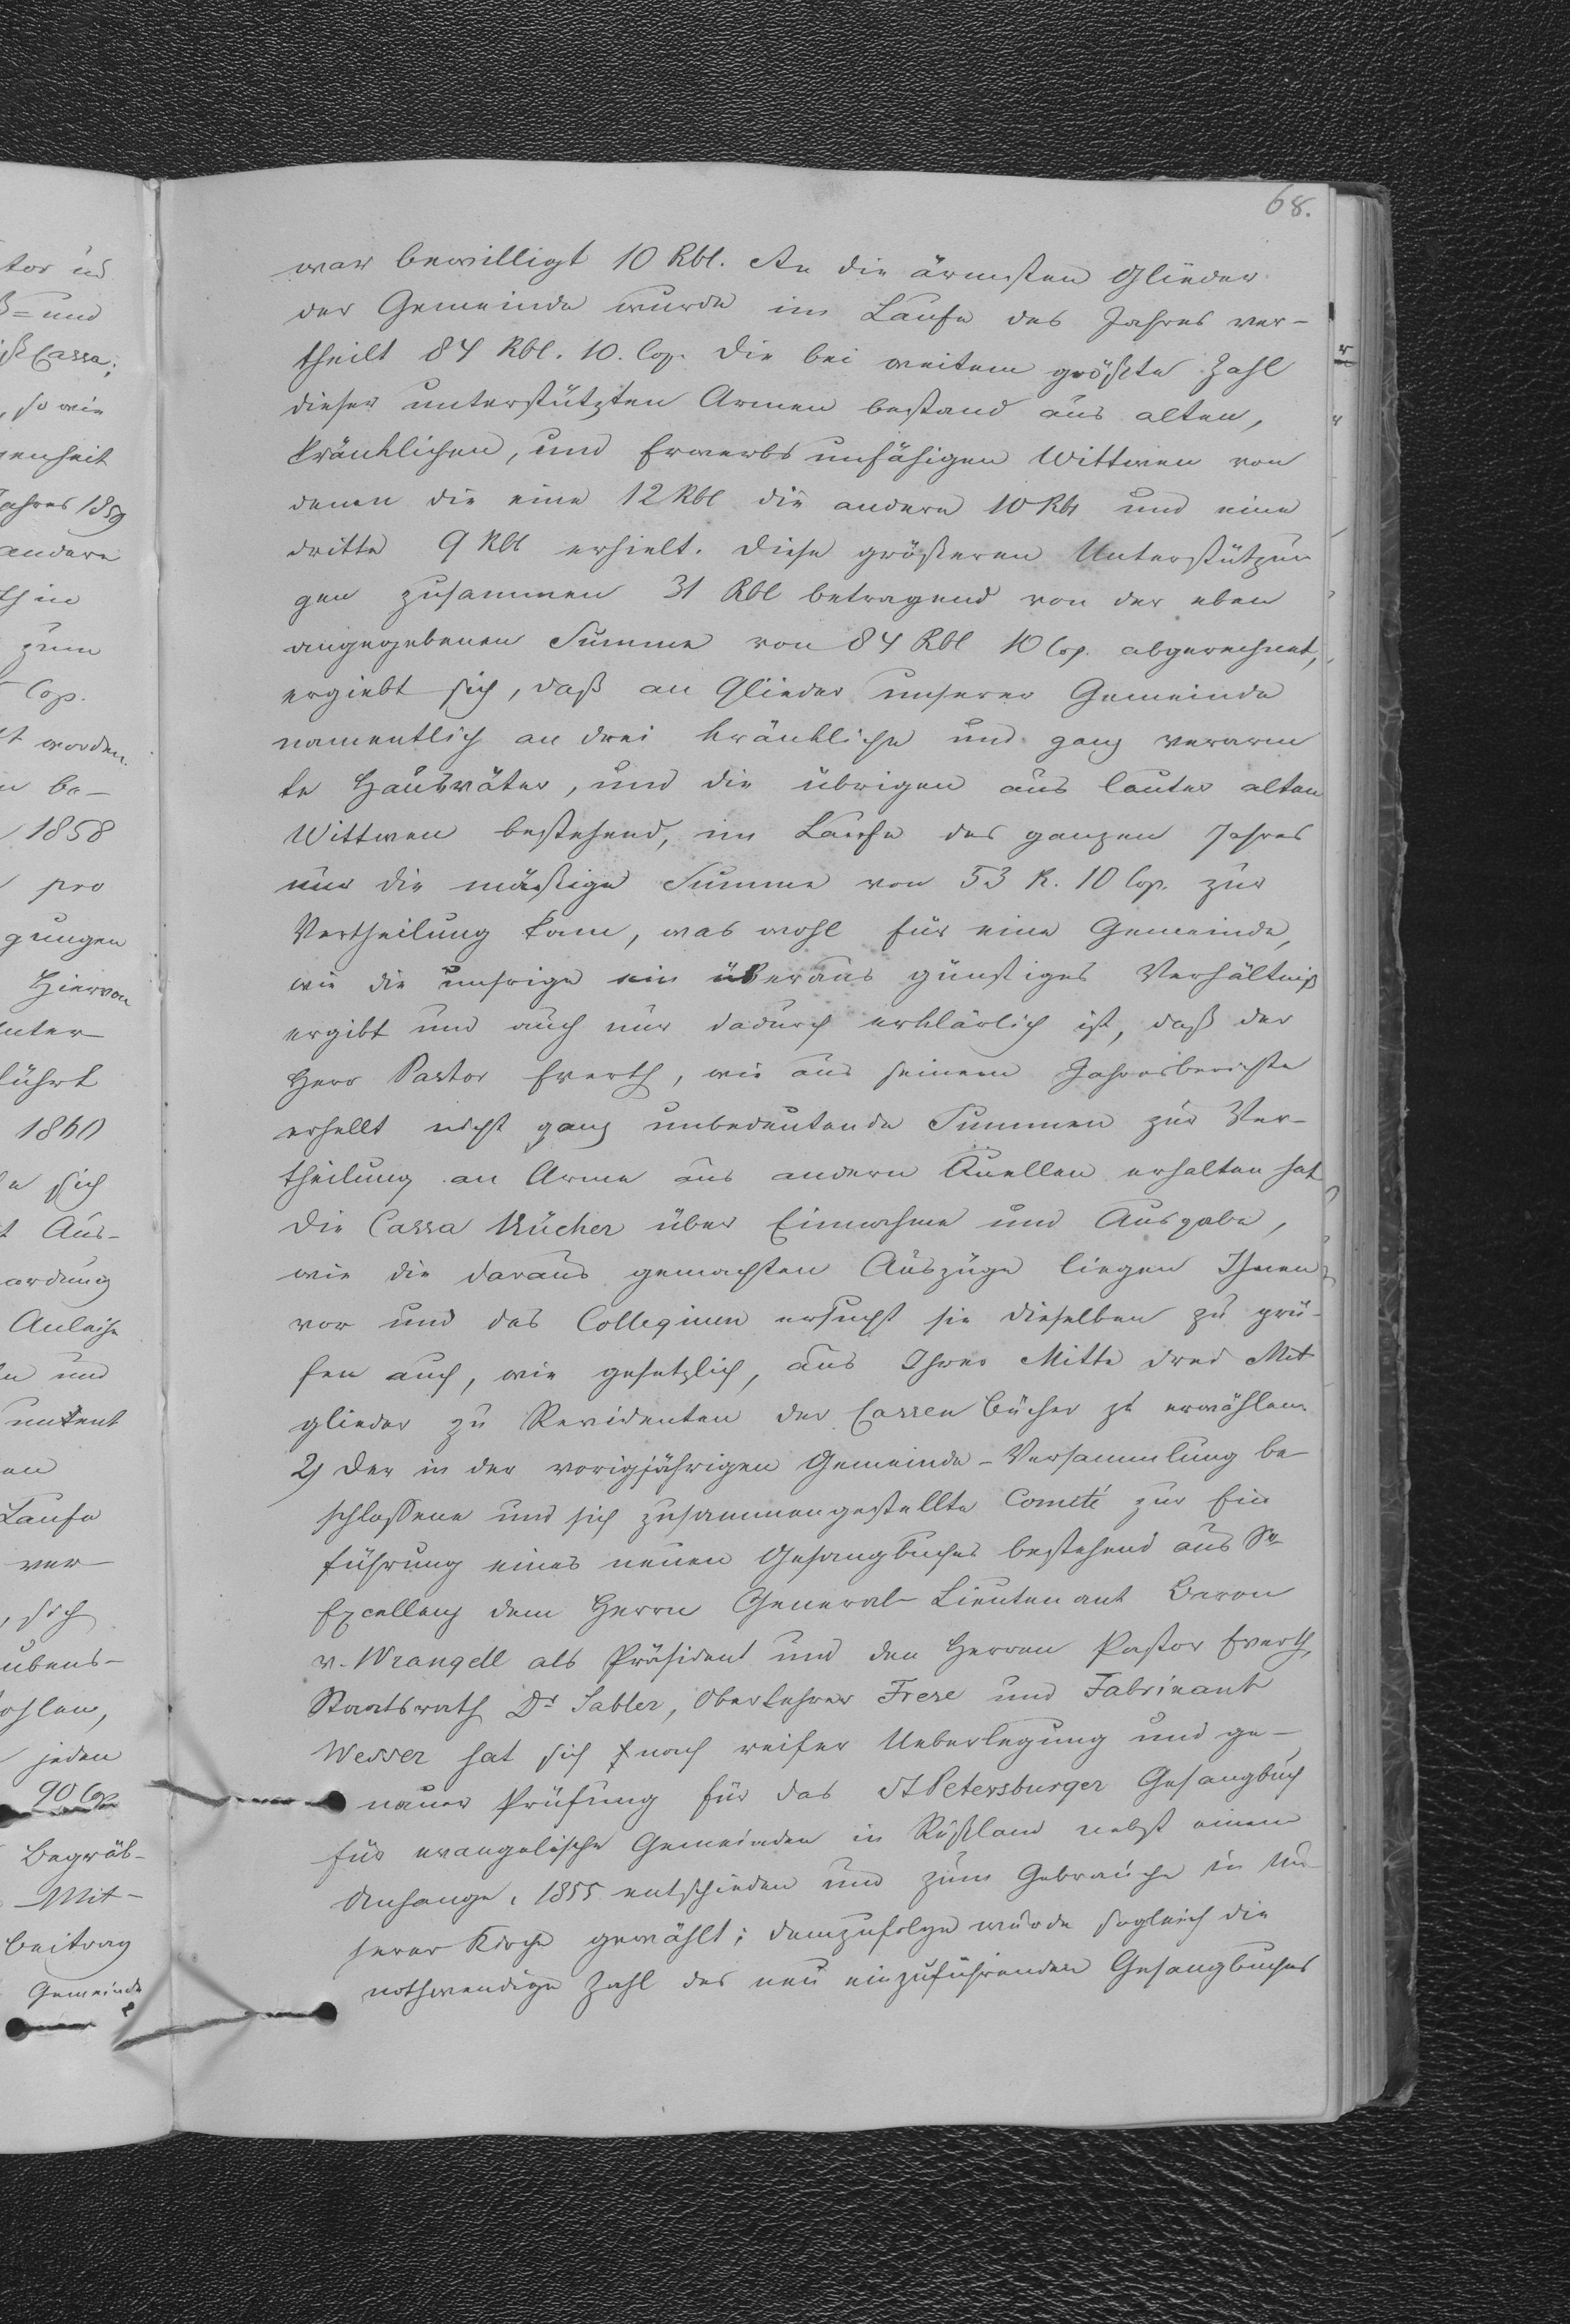 68.
war bewilligt 10 Rbl. An die ärmsten Glieder
der Gemeinde wurde im Laufe des Jahres ver-
theilt 84 Rbl. 10. Cop. Die bei weitem größte Zahl
dieser unterstützten Armen bestand aus alten,
kränklichen, und Erwerbs unfähigen Wittwen von
denen die eine 12 Rbl die andere 10 Rbl und eine
dritte 9 Rbl erhielt. Diese größeren Unterstützun
gen zusammen 31 Rbl betragend von der eben
angegebenen Summe von 84 Rbl 10 Cop. abgerechnet,
ergiebt sich, daß an Glieder unserer Gemeinde
namentlich an drei kränkliche und ganz verarm
te Hausväter, und die übrigen aus lauter alten
Wittwen bestehend, im Laufe des ganzen Jahres
nur die mäßige Summe von 53 R. 10 Cop. zur
Vertheilung kam, was wohl für eine Gemeinde,
wie die unsrige ein überaus günstiges Verhältniß
ergibt und auch nur dadurch erklärlich ist, daß der
Herr Pastor Everth, wie aus seinem Jahresberichte
erhellt nicht ganz unbedeutende Summen zur Ver-
theilung an Arme aus andern Quellen erhalten hat
Die Cassa Bücher über Einnahme und Ausgabe,
wie die daraus gemachten Auszüge liegen Ihnen
vor und das Collegium ersucht sie dieselben zu prü-
fen auch, wie gesetzlich, aus Ihrer Mitte drei Mit
glieder zu Revidenten der Cassen Bücher zu erwählen.
2) Der in der vorigjährigen Gemeinde-Versammlung be
schlossene und sich zusammengestellte Comité zur Ein
führung eines neuen Gesangbuches bestehend aus Sr
Excellenz dem Herrn General-Lieutenant Baron
v. Wrangell als Präsident und den Herren Pastor Everth,
Staatsrath Dr Sabler, Oberlehrer Frese und Fabrikant
Wesser hat sich nach reifer Ueberlegung und ge-
nauer Prüfung für das St Petersburger Gesangbuch
für evangelische Gemeinden in Rußland nebst einem
Anhange, 1855 entschieden und zum Gebrauche in un
serer Kirche gewählt; demzufolge wurde sogleich die
nothwendige Zahl des neu einzuführenden Gesangbuches